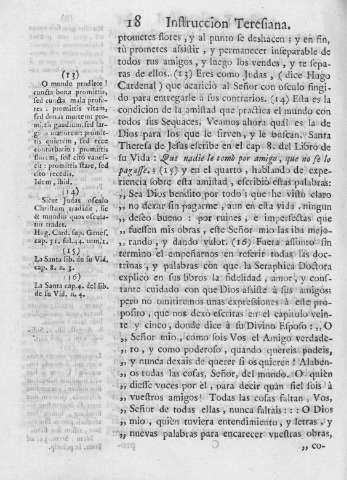 18 Instruccion Teresiana.
prometes flores, y al punto se deshacen: y en fin,
tù prometes asistir, y permanecer inseparable de
todos tus amigos, y luego los vendes, y te sepa-
ras de ellos. (13) Eres como Judas, (dice Hugo
Cardenal) que acariciò al Señor con osculo fingi-
do para entregarle à sus contrarios. (14) Esta es la
condicion de la amistad que practíca el mundo con
todos sus Sequaces. Veamos ahora quàl es la de
Dios para los que le sirven, y le buscan. Santa
Theresa de Jesus escribe en el cap. 8. del Libro de
su Vida: Que nadie le tomò por amigo, que no se lo
pagasse. (15) y en el quarto, hablando de expe-
riencia sobre esta amistad, escribiò estas palabras:
,, Sea Dios bendito por todo: que he visto claro
,, no dexar sin pagarme, aun en esta vida, ningun
,, deseo bueno: por ruines, e imperfectas que
,, fuessen mis obras, este Señor mio las iba mejo-
,, rando, y dando valor. (16) Fuera assunto sin
termino el empeñarnos en referir todas las doc-
trinas, y palabras con que la Seraphica Doctora
explicò en sus libros la fidelidad, amor, y cons-
tante cuidado con que Dios asiste à sus amigos;
pero no omitiremos unas expresiones à este pro-
posito, que nos dexò escritas en el capitulo vein-
te y cinco, donde dice à su Divino Esposo: ,, O
,, Señor mio, como sois Vos el Amigo verdade-
,, ro, y como poderoso, quando quereis podeis,
,, y nunca dexais de querer si os quieren! Alaben-
,, os todas las cosas, Señor, del mundo. O quièn
,, diesse voces por el, para decir quàn fiel sois à
,, vuestros amigos! Todas las cosas faltan, Vos,
,, Señor de todas ellas, nunca faltais::: O Dios
,, mio, quièn tuviera entendimiento, y letras, y
,, nuevas palabras para encarecer vuestras obras,
,, co-
(13)
O munde proditor!
cuncta bona promittis,
sed cuncta mala profers:
promittis vitam,
sed donas mortem: promittis
gaudium, sed largiris
mœrorem: promittis
quietem, sed ecce
turbatio: promittis
florem, sed citò vanescit:
promittis stare, sed
citò recedis.
Idem, ibid.
(14)
Sicut Judas osculo
Christum tradidit, sic
& mundus quos osculatur
tradet.
Hug. Card. sup. Genes.
cap. 31. fol. 44. num. 1.
(15)
La Santa lib. de su Vid.
cap. 8. n. 3.
(16)
La Santa cap. 4. del lib.
de su Vid. n. 4.